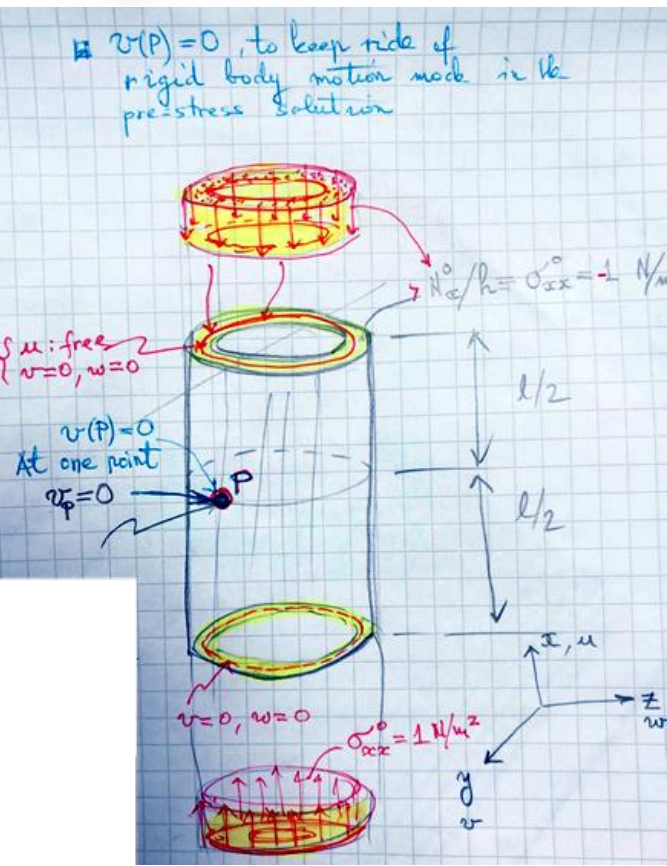 v(P) = 0, to keep ride of
rigid body motion mode in the
pre-stress solution
N°x/h = σ°xx = -1 N/m
{ u : free
v=0, w=0
l/2
v(P) = 0
At one point
P
vp = 0
l/2
x, u
v=0, w=0
z
w
σ°xx = 1 N/m²
y
v